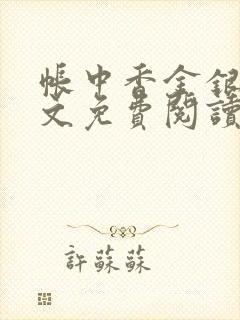 帳中香金銀
文免費閱讀
許蘇蘇